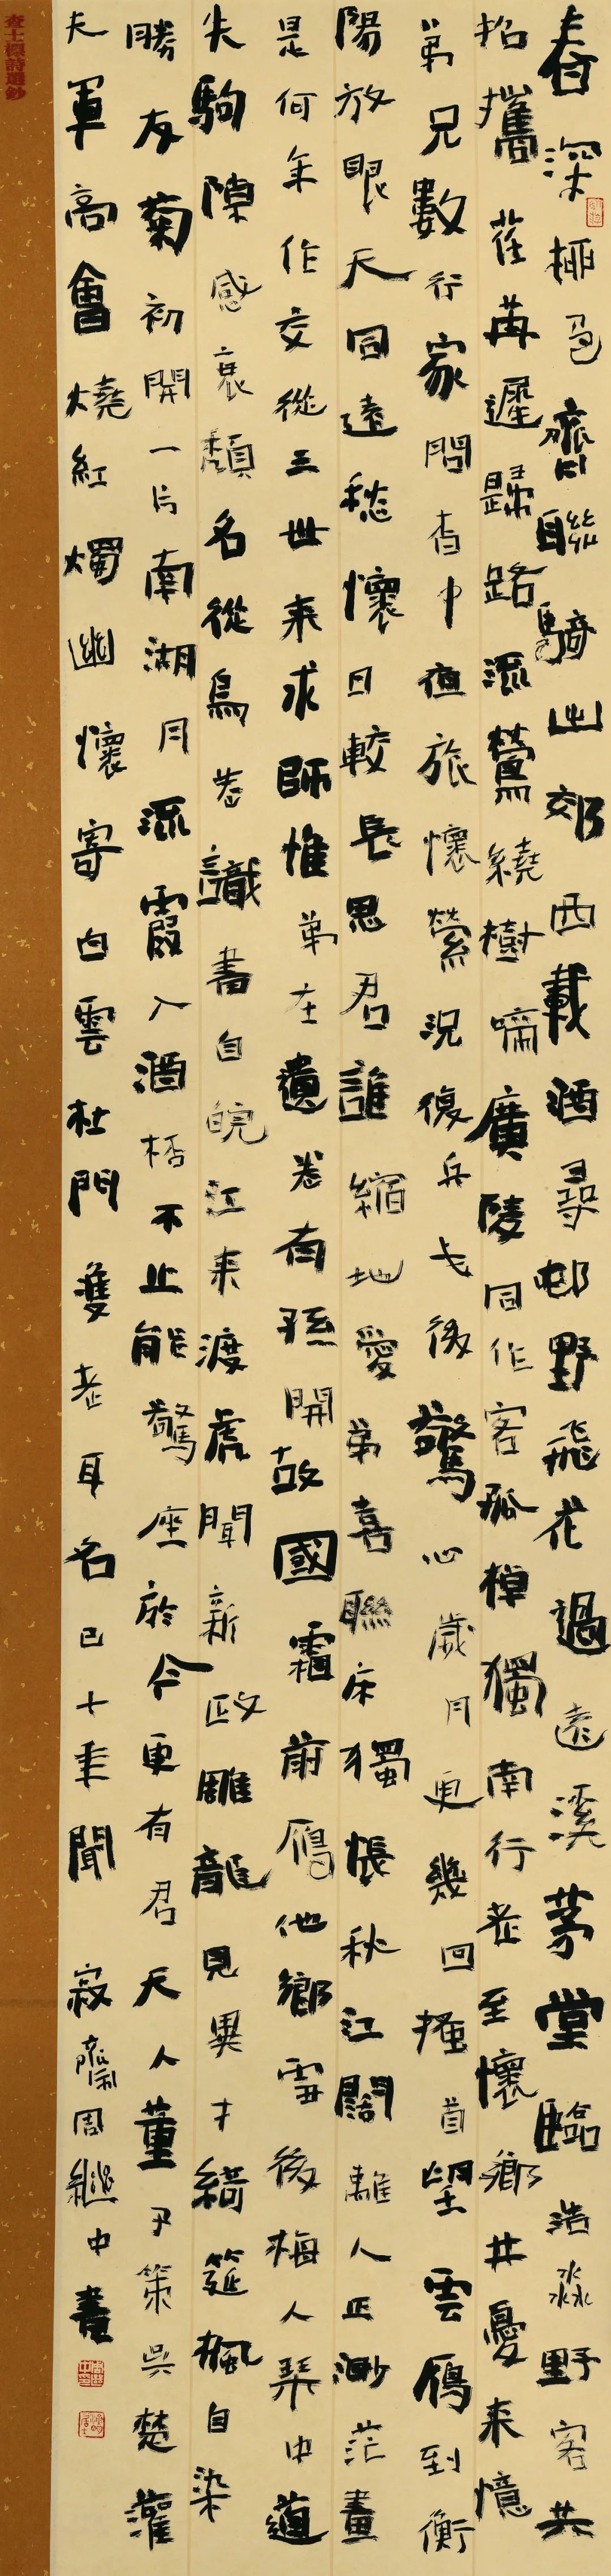 查士標詩選鈔
春深柳色齊聯騎出郊西載酒尋邨野飛花過遠溪茅堂臨浩淼野客共
招攜荏苒遲歸路流鶯繞樹啼廣陵同作客孤棹獨南行老至懷鄉井憂来憶
弟兄數行家問杳中夜旅懷縈況復兵戈後驚心歲月更幾回搔首望雲鴈到衡
陽放眼天同遠愁懷日較長思君誰縮地愛弟喜聯床獨悵秋江闊離人正渺茫畫
是何年作交從三世来求師惟弟在遺卷有孫開故國霜前鴈他鄉雪後梅人琴中道
失駒隙感衰頹名從鳥卷識書自皖江来渡虎聞新政雕龍見異才綺筵楓自染
勝友菊初開一片南湖月流霞入酒桮不止能驚座於今更有君天人董尹策吳楚灌
夫軍高會燒紅燭幽懷寄白雲杜門雙老耳名已十年聞 寂齋周繼中書